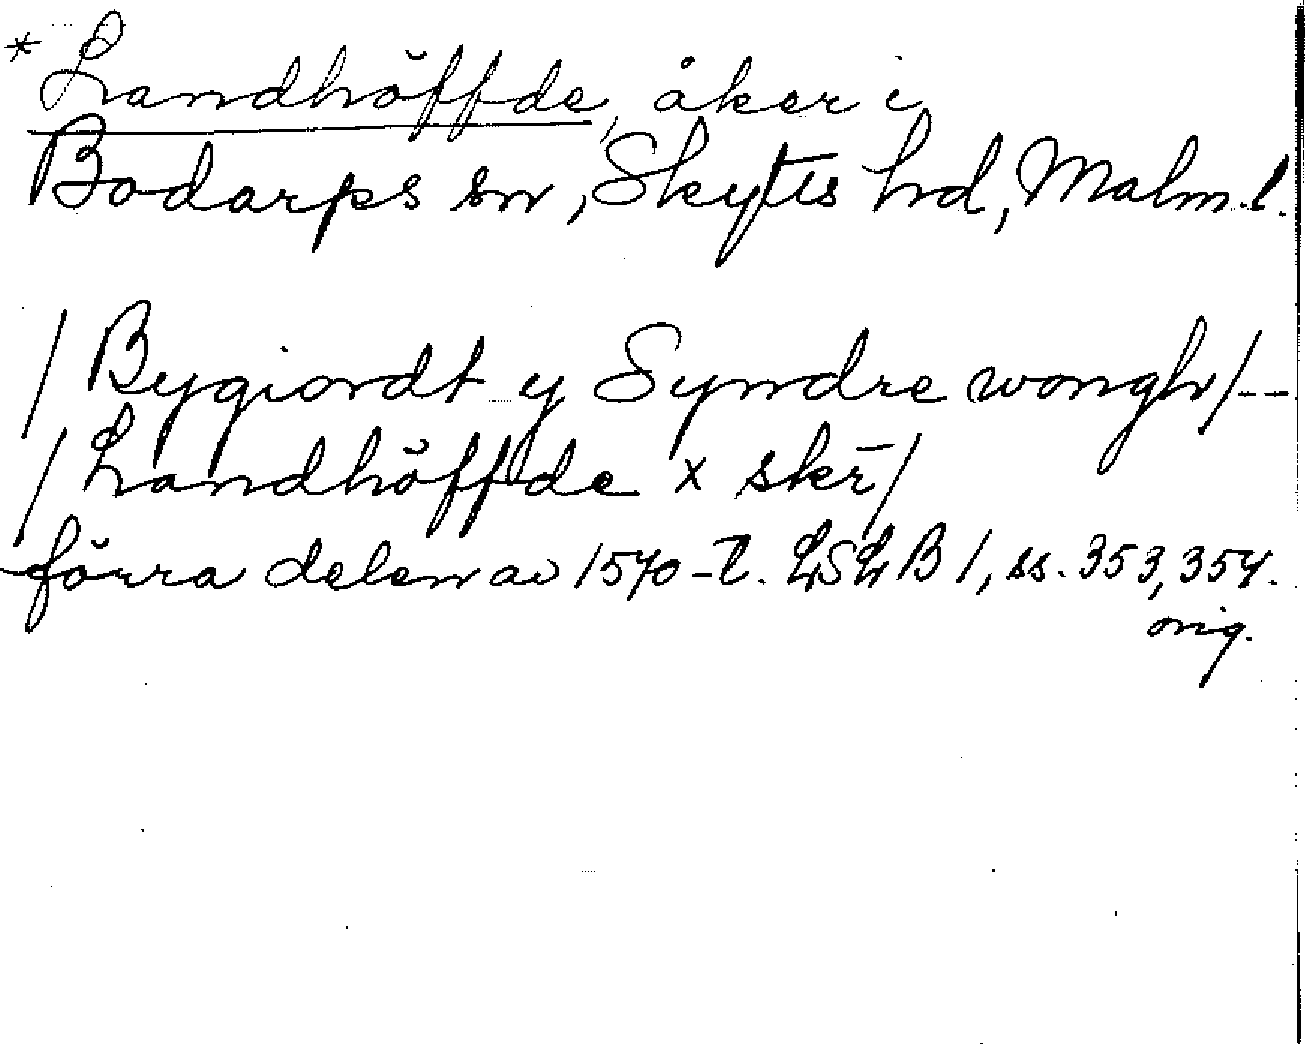 * Landhöffde, åker i
Bodarps sn, Skytts hd, Malm.l.
/Bygiordt y Syndre wongh/--
/Landhöffde x skr̄/
förra delen av 1570-t. LSLB 1, ss. 353, 354.
orig.